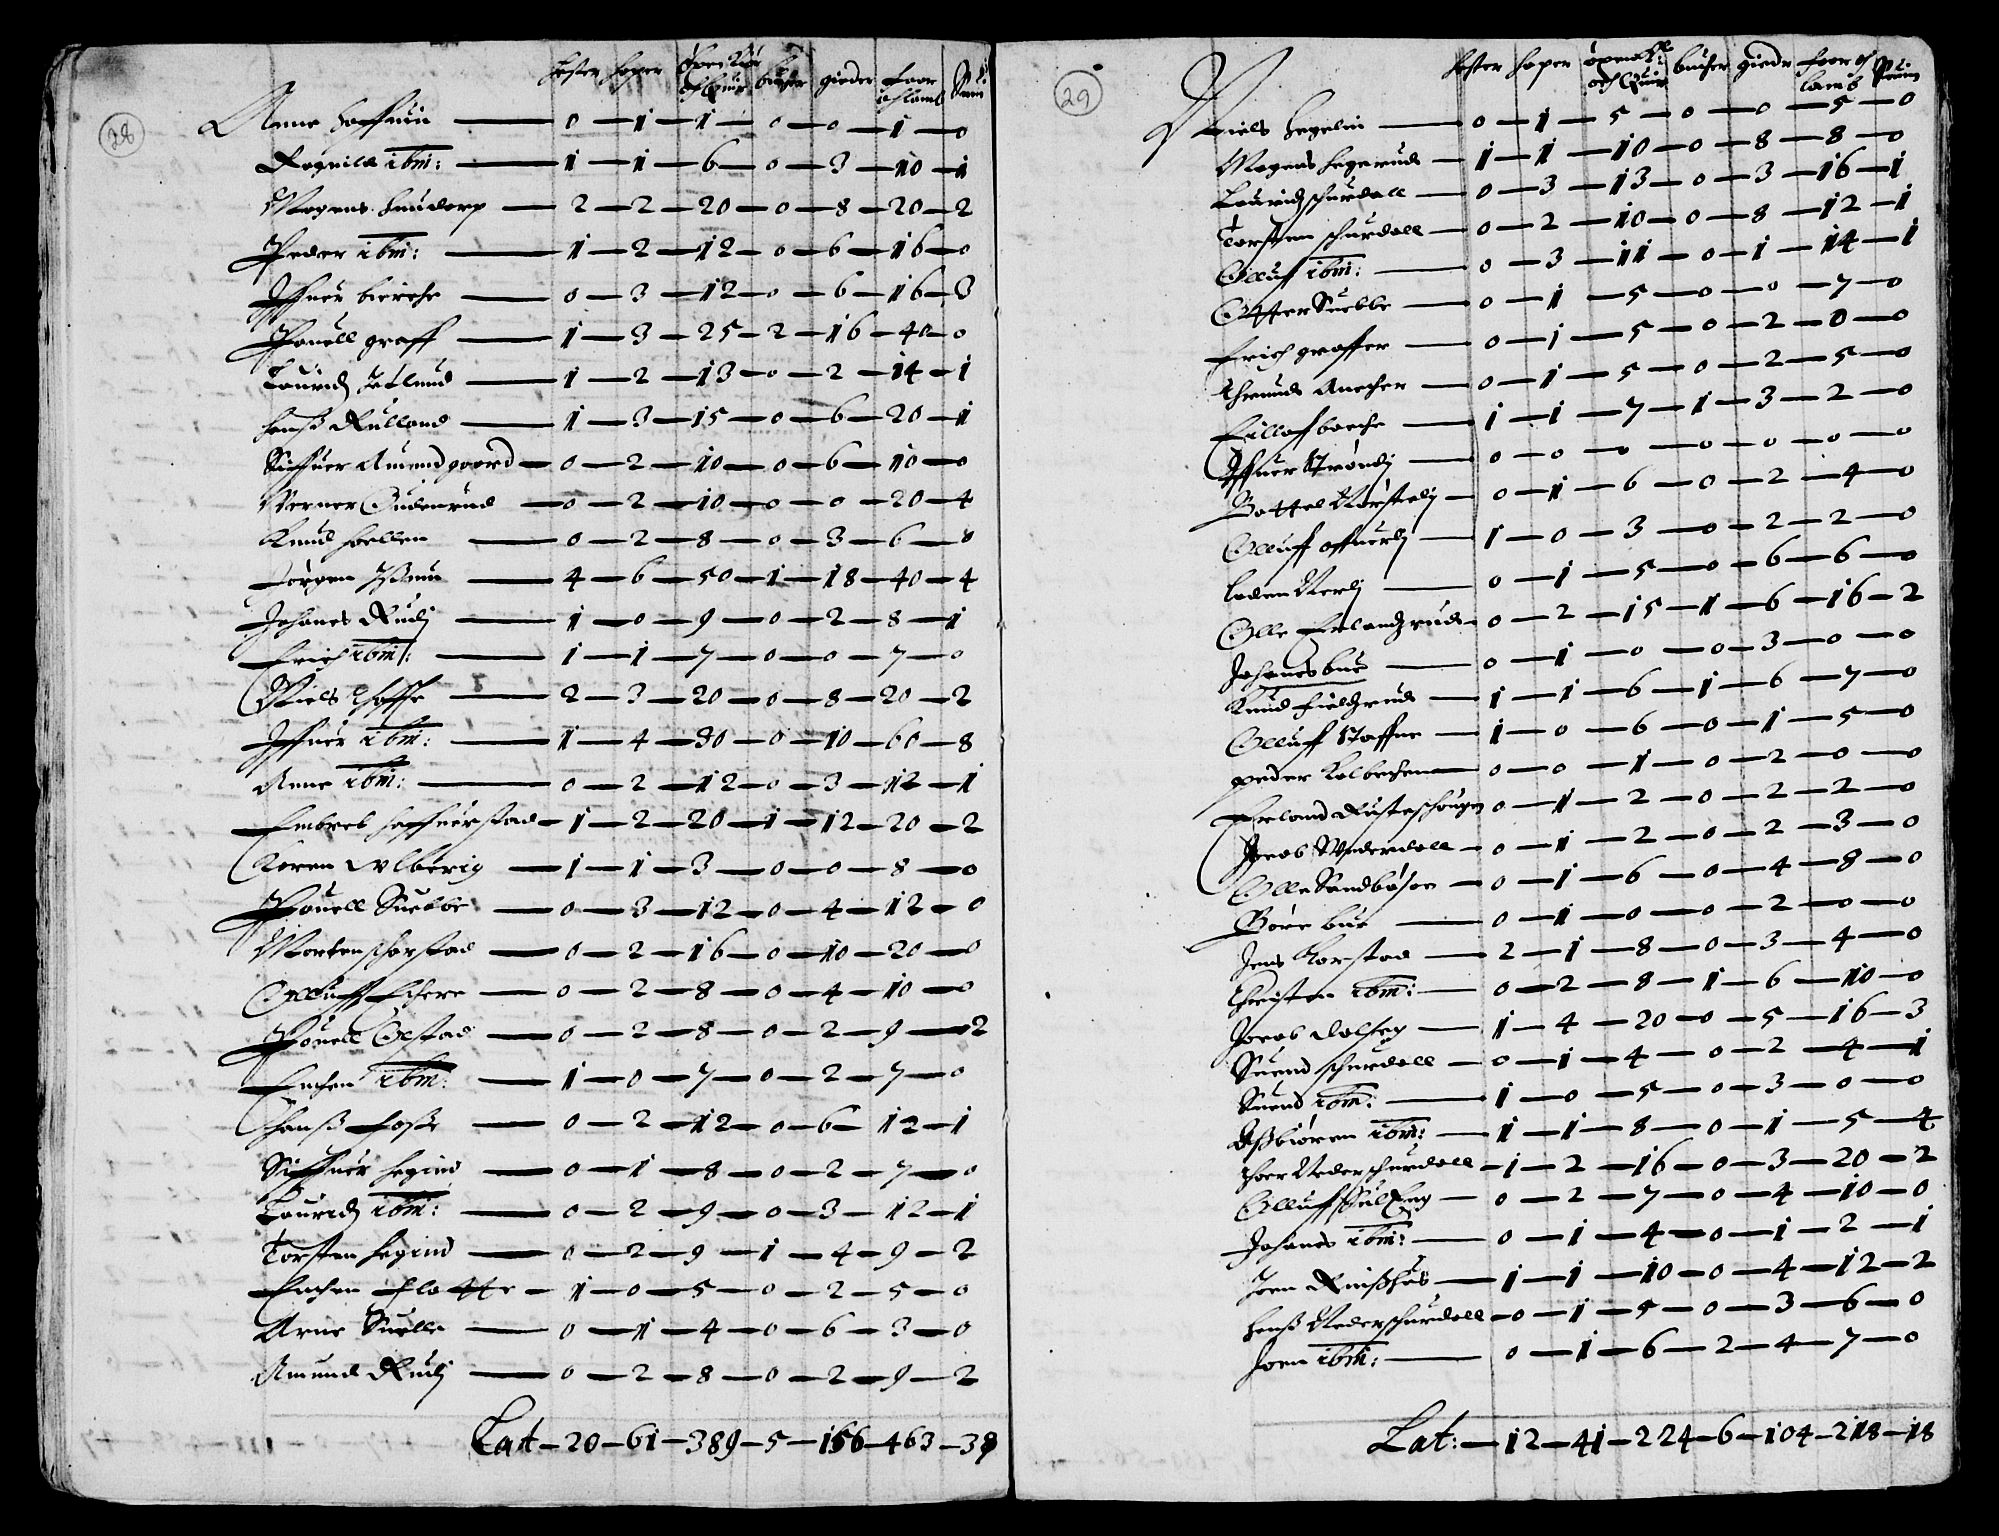 28
hester hoper och Quir bucher gieder foor och lamb Suin
Anne — 0 — 1 — 1 — 0 — 0 — 1 — 0
Rognild ibm: — 1 — 1 — 6 — 0 — 3 — 10 — 1
Mogens — 2 — 2 — 20 — 0 — 8 — 20 — 2
Peder ibm: — 1 — 2 — 12 — 0 — 6 — 16 — 0
Iffuer — 0 — 3 — 12 — 0 — 6 — 16 — 3
Pouell graff — 1 — 3 — 25 — 2 — 16 — 40 — 0
Lauridz — 1 — 2 — 13 — 0 — 2 — 14 — 1
Hanß Rulland — 1 — 3 — 15 — 0 — 6 — 20 — 1
Siffuer Amendgoord — 0 — 2 — 10 — 0 — 6 — 10 — 0
Verner Gudenrud — 0 — 2 — 10 — 0 — 0 — 20 — 4
Knud — 0 — 2 — 8 — 0 — 3 — 6 — 0
Jörgen — 4 — 6 — 50 — 1 — 18 — 40 — 4
Johanes Rudj — 1 — 0 — 9 — 0 — 2 — 8 — 1
Erich ibm: — 1 — 1 — 7 — 0 — 0 — 7 — 0
Niels — 2 — 3 — 20 — 0 — 8 — 20 — 2
Iffuer ibm: — 1 — 4 — 30 — 0 — 10 — 60 — 8
Anne ibm: — 0 — 2 — 12 — 0 — 3 — 12 — 1
Embret — 1 — 2 — 20 — 1 — 12 — 20 — 2
Karen Vlberig — 1 — 1 — 3 — 0 — 0 — 8 — 0
Pouell Suebbe — 0 — 3 — 12 — 0 — 4 — 12 — 0
Morten schorstad — 0 — 2 — 16 — 0 — 10 — 20 — 0
Olluff — 0 — 2 — 8 — 0 — 4 — 10 — 0
Pouell Olstad — 0 — 2 — 8 — 0 — 2 — 9 — 2
Enchen ibm: — 1 — 0 — 7 — 0 — 2 — 7 — 0
Hanß — 0 — 2 — 12 — 0 — 6 — 12 — 1
Siffuer Hegind — 0 — 1 — 8 — 0 — 2 — 7 — 0
Lauridz ibm: — 0 — 2 — 9 — 0 — 3 — 12 — 1
Torsten Hegind — 0 — 2 — 9 — 1 — 4 — 9 — 2
Enchen Flatte — 1 — 0 — 5 — 0 — 2 — 5 — 0
Arne Suelle — 0 — 1 — 4 — 0 — 6 — 3 — 0
Amund Rudj — 0 — 2 — 8 — 0 — 2 — 9 — 2
Lat — 20 — 61 — 389 — 5 — 156 — 463 —
29
hester hoper och Quir bucher gieder foor och lamb Suin
Niels — 0 — 1 — 5 — 0 — 0 — 5 — 0
Mogens Hegerud — 1 — 1 — 10 — 0 — 8 — 8 — 0
Lauridz schurdall — 0 — 3 — 13 — 0 — 3 — 16 — 1
Torsten schurdall — 0 — 2 — 10 — 0 — 8 — 12 — 1
Olluf ibm: — 0 — 3 — 11 — 0 — 1 — 14 — 1
Otter Suebbe — 0 — 1 — 5 — 0 — 0 — 7 — 0
Erich graffer — 0 — 1 — 5 — 0 — 2 — 0 — 0
Amund Anecher — 0 — 1 — 5 — 0 — 2 — 5 — 0
Eillof — 1 — 1 — 7 — 1 — 3 — 2 — 0
Iffuer Strandj — 0 — 0 — 0 — 0 — 0 — 0 — 0
Bottel — 0 — 1 — 6 — 0 — 2 — 4 — 0
Olluff — 1 — 0 — 3 — 0 — 2 — 2 — 0
Loden — 0 — 1 — 5 — 0 — 6 — 6 — 0
Olle Erlandzrud — 0 — 2 — 15 — 1 — 6 — 16 — 2
Johanes bue — 0 — 1 — 0 — 0 — 3 — 0 — 0
Knud — 1 — 1 — 6 — 1 — 6 — 7 — 0
Olluff Staffne — 1 — 0 — 6 — 0 — 1 — 5 — 0
peder Kolbechen — 0 — 0 — 1 — 0 — 2 — 0 — 0
Erland Rusteschougen — 0 — 1 — 2 — 0 — 2 — 2 — 0
Jacob — 0 — 1 — 2 — 0 — 2 — 3 — 0
Olle — 0 — 1 — 6 — 0 — 4 — 8 — 0
Böre bue — 0 — 1 — 0 — 0 — 2 — 0 — 0
Jens Korstad — 2 — 1 — 8 — 0 — 3 — 4 — 0
Christen ibm: — 0 — 2 — 8 — 1 — 6 — 10 — 0
Jacob Dalseg — 1 — 4 — 20 — 0 — 5 — 16 — 3
Suend schurdall — 0 — 1 — 4 — 0 — 2 — 4 — 1
Suend ibm: — 1 — 0 — 5 — 0 — 3 — 0 — 0
Aßbiören ibm: — 1 — 1 — 8 — 0 — 1 — 5 — 4
Thoer Nederschurdall — 1 — 2 — 16 — 0 — 3 — 20 — 2
Olluff — 0 — 2 — 7 — 0 — 4 — 10 — 0
Johanes ibm: — 0 — 1 — 4 — 0 — 1 — 2 — 1
Joen — 1 — 1 — 10 — 0 — 4 — 12 — 2
Hanß Nederschurdall — 0 — 1 — 5 — 0 — 3 — 6 — 0
Joen ibm: — 0 — 1 — 6 — 2 — 4 — 7 — 0
Lat: — 12 — 41 — 224 — 6 — 104 — 218 — 18